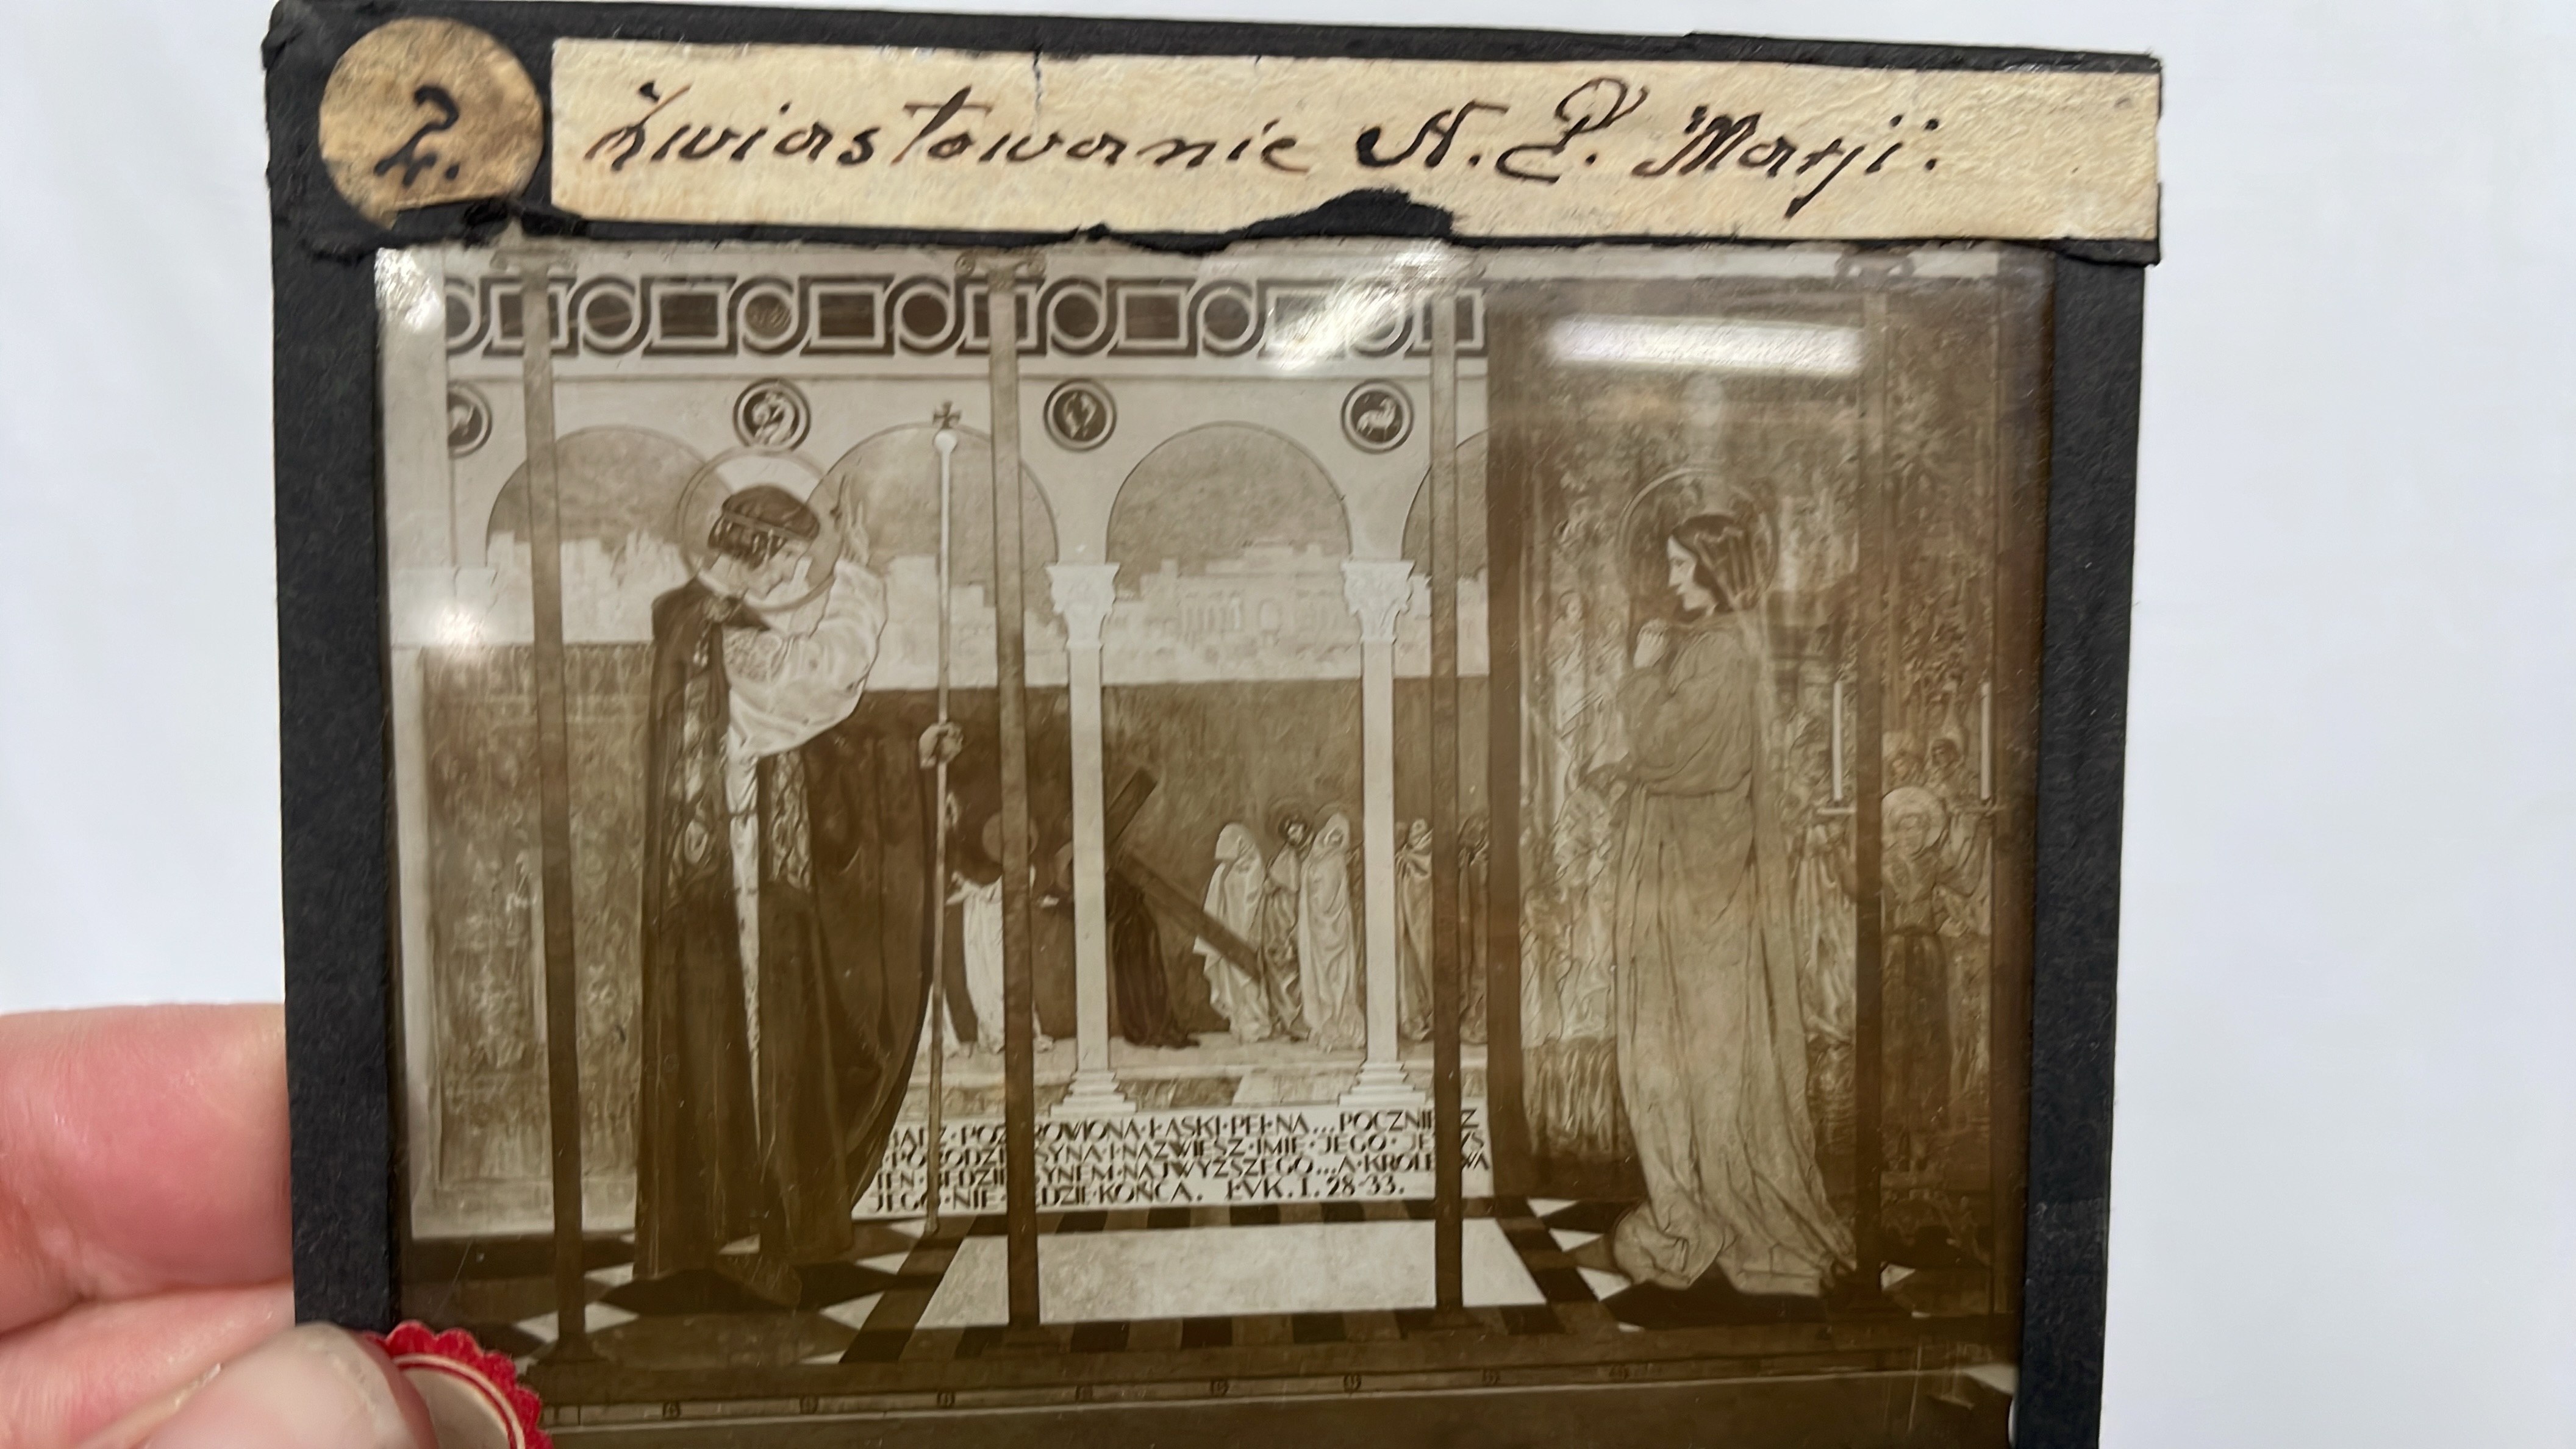 2.
Zwiastowanie N. P. Marji.
BĄDŹ·POZDROWIONA·ŁASKI·PEŁNA...POCZNIESZ
I·PORODZISZ·SYNA·I·NAZWIESZ·IMIĘ·JEGO·JEZVS
TEN·BĘDZIE·SYNEM·NAJWYŻSZEGO...A·KRÓLESTWA
JEGO·NIE·BĘDZIE·KOŃCA. ŁVK. I. 28-33.